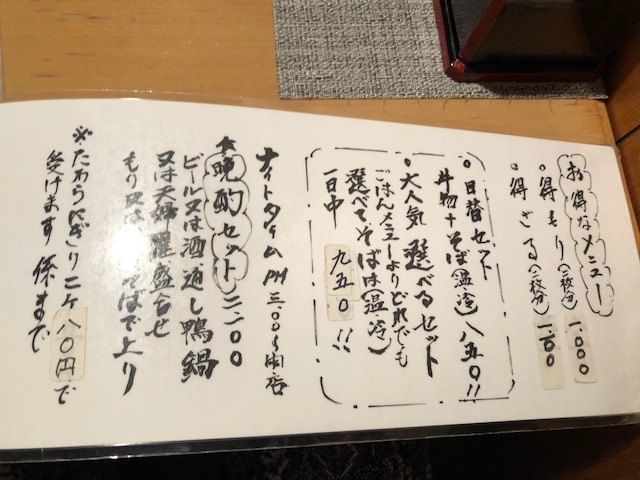 お得なメニュー
・得もり(二枚分) 一.000
・得ざる(二枚分) 一.一00
・日替セット
丼物+そば(温冷)八五0!!
・大人気 選べるセット
ごはんメニューよりどれでも
選べてそばは(温冷)
一日中 九五0!!
ナイトタイム PM 三:00~閉店
★晩酌セット 二二00
ビール又は酒通し鴨鍋
又は天婦羅盛合せ
もり又は そばで上り
※たわらにぎり二ケ 八0円で
受けます 係まで